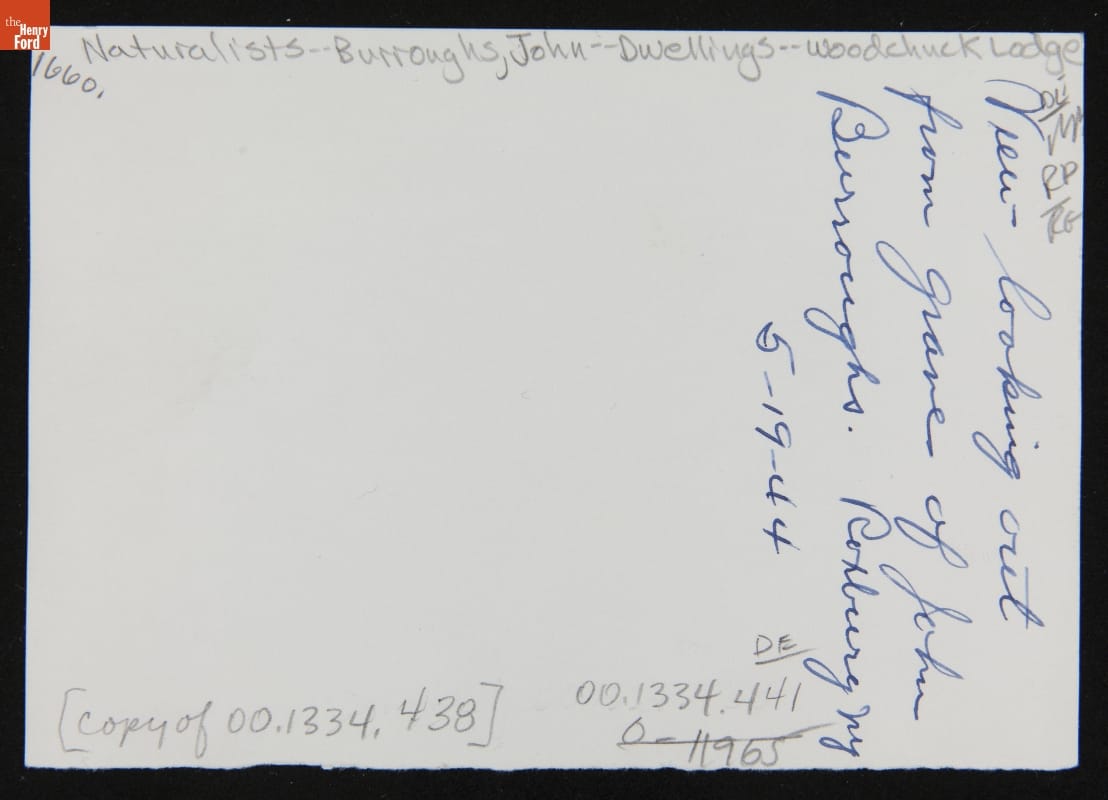 the
Henry
Ford
Naturalists--Burroughs, John--Dwellings--Woodchuck Lodge
1660.
View looking out
from grave of John
Burroughs. Roxbury ny
5-19-44
DE
00.1334.441
0-11965
[copy of 00.1334.438]